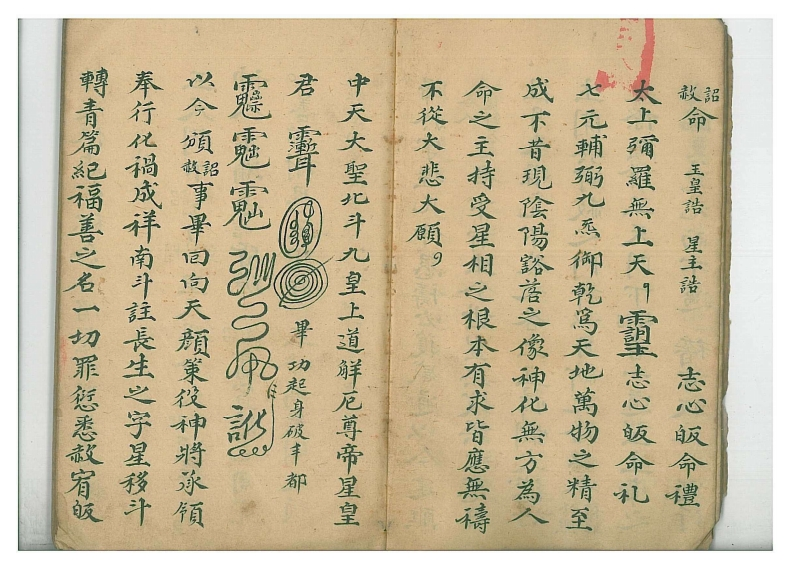 詔赦命 玉皇誥 星主誥 志心皈命禮
太上彌羅無上天 志心皈命礼
七元輔弼九炁御乾爲天地萬物之精至
成不昔現陰陽谿落之像神化無方為人
命之主持受星相之根本有求皆應無禱
不從大悲大願
中天大聖北斗九皇上道解厄尊帝星皇
君 畢功起身破丰都
以今頒詔赦事畢回向天顏策役神將承領
奉行化禍成祥南斗註長生之字星移斗
轉青篇紀福善之名一切罪愆悉赦宥皈